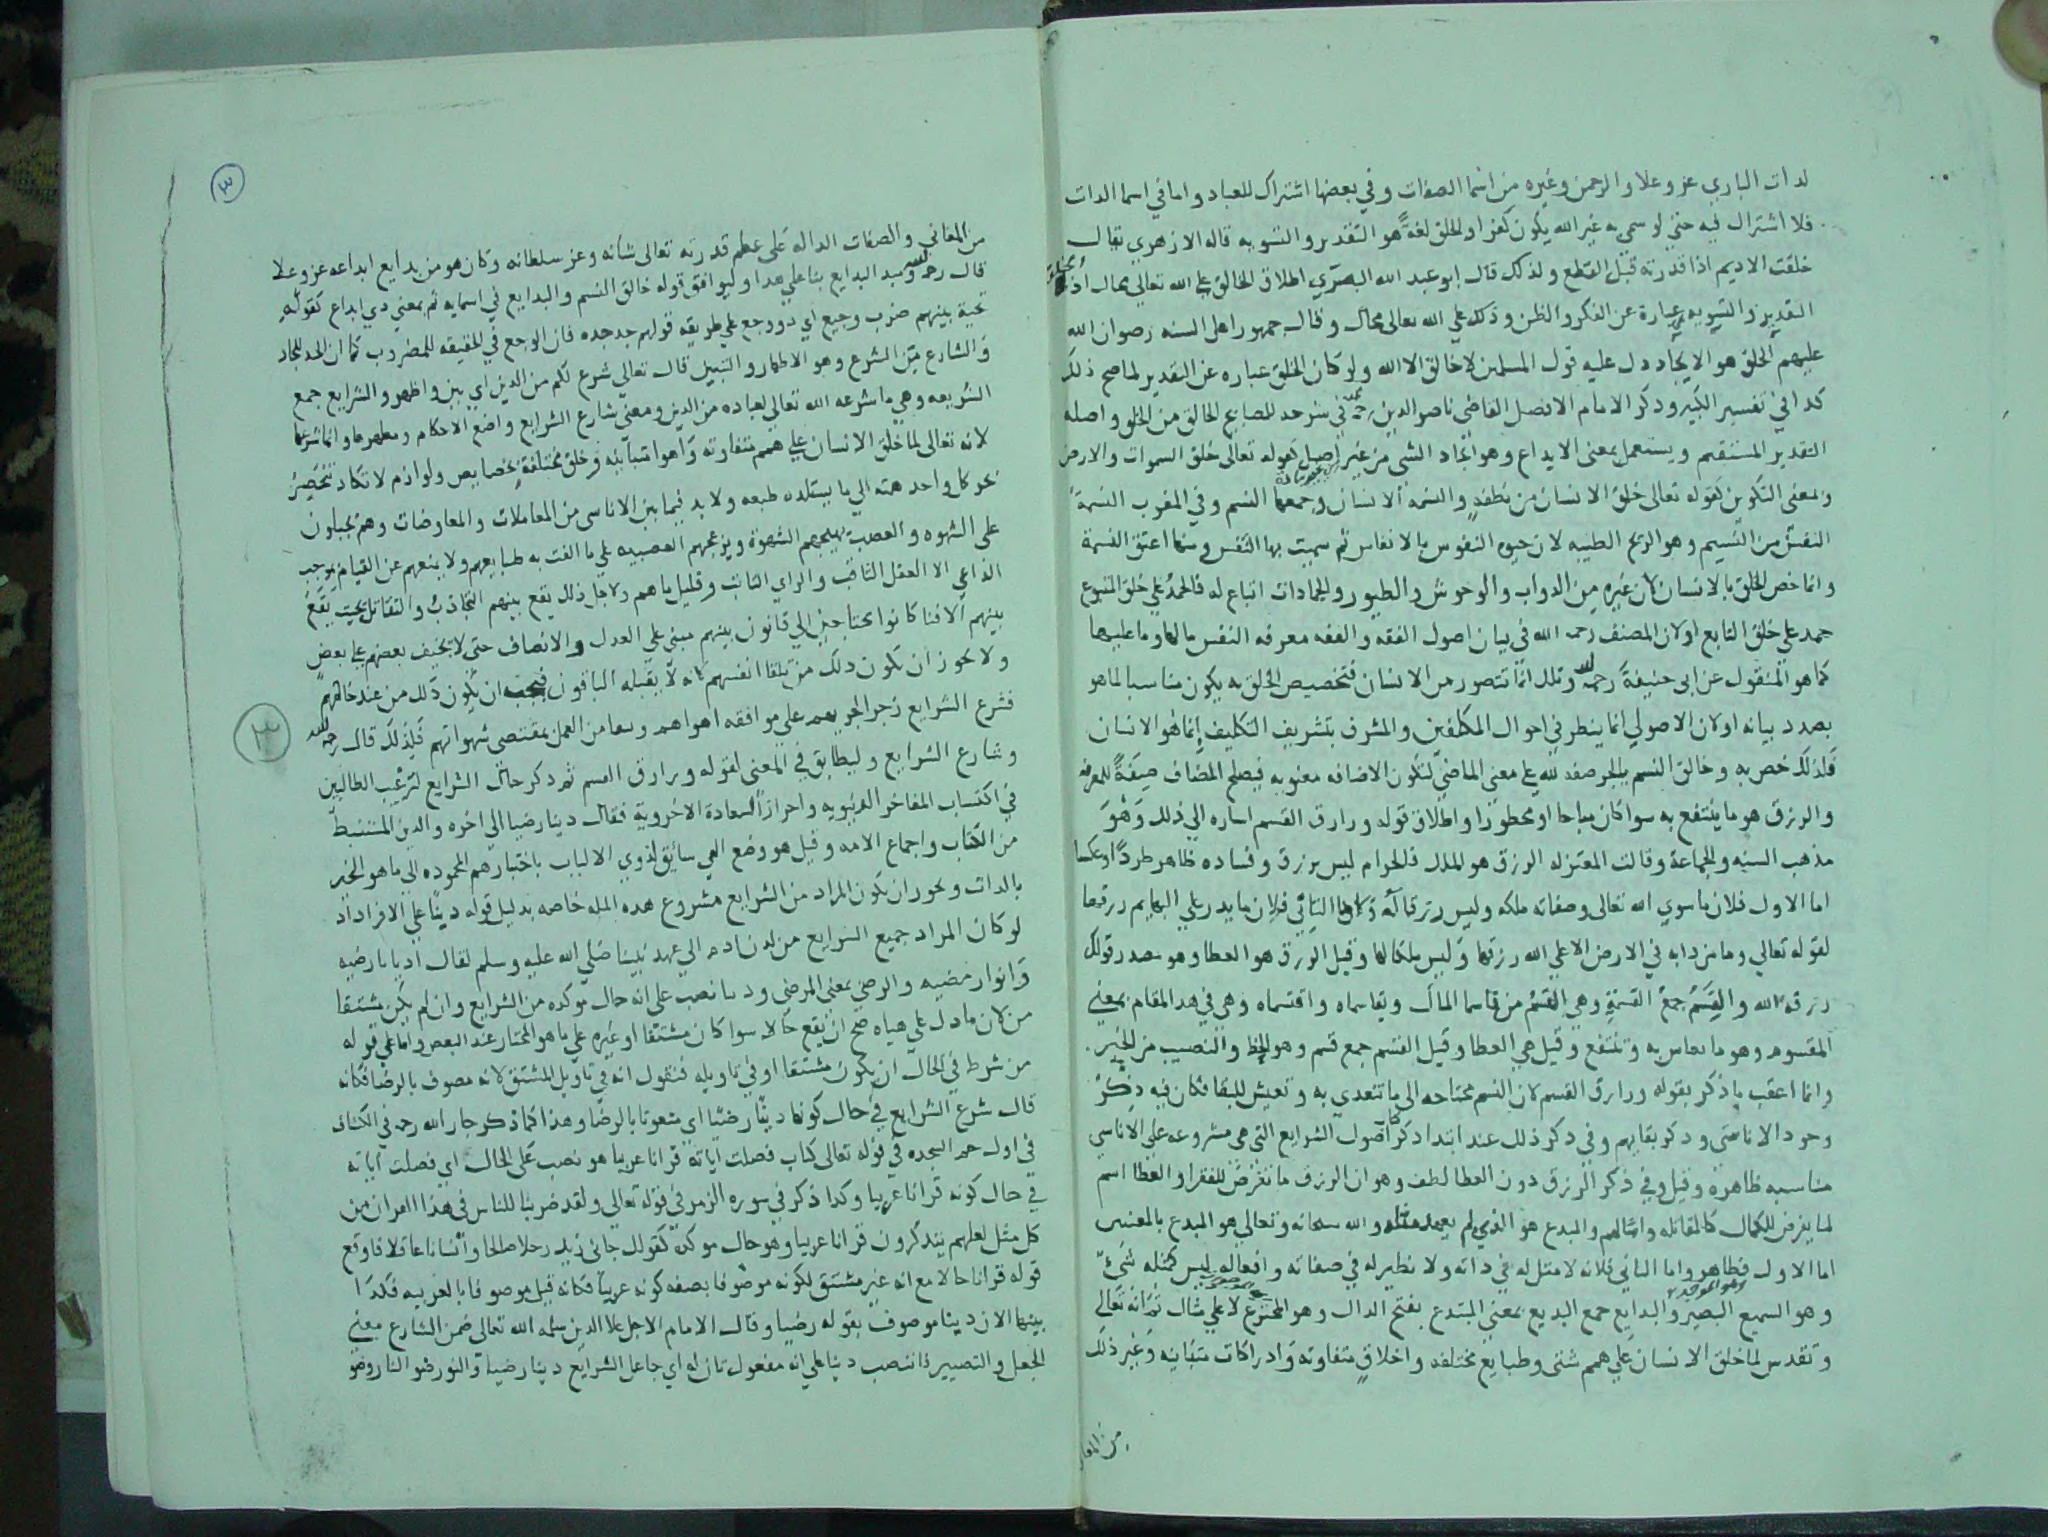 لذات الباري عز وعلا والرحمن وغيره من اسما الصفات وفي بعضها اشتراك للعباد واما في اسما الذات
فلا اشتراك فيه حتى لو سمي به غير الله يكون كفرا والخلق لغةً هو التقدير والتسويه قاله الازهري يقال
خلقت الاديم اذا قدرته قبل القطع ولذلك قال ابو عبد الله البصري اطلاق الخالق على الله تعالى محال اذ
التقدير والتسويه عبارة عن الفكر والظن وذلك علي الله تعالى محال وقال جمهور اهل السنه رضوان الله
عليهم الخلق هو الايجاد دل عليه قول المسلمين لا خالق الا الله ولو كان الخلق عباره عن التقدير لما صح ذلك
كذا في تفسير الكبير وذكر الامام الافضل القاضي ناصر الدين رحمه في الخالق من الخلق واصله
التقدير المستقيم ويستعمل بمعنى الابداع وهو ايجاد الشي من غير اصل كقوله تعالى خلق السموات والارض
وبمعنى التكوين كقوله تعالى خلق الانسان من نطفة والنسمة الانسان وجمعها النسم وفي المغرب النسمة
النفس من النسيم وهو الريح الطيبه لان حيوه النفوس بالانفاس ثم سميت بها النفس ومنها اعتق النسمة
وانما خص الخلق بالانسان لان غيره من الدواب والوحوش والطيور والجمادات اتباع له فالحمد علي خلق المتبوع
حمد علي خلق التابع او لان المصنف رحمه الله في بيان اصول الفقه والفقه معرفه النفس مالها وما عليها
كما هو المنقول عن ابي حنيفة رحمه الله وذلك انما تتصور من الانسان فتخصيص الخلق به يكون مناسبا لما هو
بصدد بيانه او لان الاصولي انما ينظر في احوال المكلفين والمشرف بتشريف التكليف انما هو الانسان
فلذلك خص به وخالق النسم بالجر صفه لله علي معنى الماضي لتكون الاضافه معنويه فيصلح المضاف صفةً للمعرفه
والرزق هو ما ينتفع به سوا كان مباحا او محظورا واطلاق قوله ورازق القسم اشاره الي ذلك وهو
مذهب السنه والجماعة وقالت المعتزله الرزق هو الملك فالحرام ليس برزق وفساده ظاهر طردًا وعكسا
اما الاول فلان ما سوي الله تعالى وصفاته ملكه وليس رزقا له واما الثاني فلان ما يدر علي البهايم رزقها
لقوله تعالي وما من دابه في الارض الا علي الله رزقها وليس ملكا لها وقيل الرزق هو العطا وهو مصدر قولك
رزقه الله والقِسَم جمع القسمة وهي القسم من قاسما المال وتقاسماه واقتسماه وهي في هذا المقام بمعني
المقسوم وهو ما يعاش به وينتفع وقيل هي العطا وقيل القسم جمع قسم وهو الحظ والنصيب من الخير
وانما اعقب ما ذكر بقوله ورازق القسم لان النسم محتاجه الي ما تتغذي به وتعيش للبقا فكان فيه ذكر
وجود الاناسي وذكر بقايهم وفي ذكر ذلك عند ابتدا ذكر اصول الشرايع التي هي مشروعه علي الاناسي
مناسبه ظاهرة وقيل وفي ذكر الرزق دون العطا لطف وهو ان الرزق ما يفرض للفقرا والعطا اسم
لما يفرض للكمال كالمقاتله وامثالهم والمبدع هو الذي لم يعهد مثله والله سبحانه وتعالي هو المبدع بالمعنيين
اما الاول فظاهر واما الثاني فلانه لا مثل له في ذاته ولا نظير له في صفاته وافعاله ليس كمثله شيء
وهو السميع البصير والبدايع جمع البديع بمعني المبتدع بفتح الدال وهو المخترع لا علي مثال ثم انه تعالى
وتقدس لما خلق الانسان علي همم شتى وطبايع مختلفه واخلاقٍ متفاوته وادراكات متباينه وغير ذلك
من المعا
٣
من المعاني والصفات الداله على عظم قدرته تعالى شانه وعز سلطانه وكان هو من بدايع ابداعه عز وعلا
قال رحمه الله مبدع البدايع بنا علي هذا وليوافق قوله خالق النسم والبدايع في اسمايه ثم بمعني ذي ابداع كقوله
تحية بينهم ضرب وجيع اي ذو وجع علي طريقه قولهم جد جده فان الوجع في الحقيقه للمضروب كما ان الجد للجاد
والشارع من الشرع وهو الاظهار والتبيين قال تعالي شرع لكم من الدين اي بين واظهر والشرايع جمع
الشريعه وهي ما شرعه الله تعالي لعباده من الدين ومعني شارع الشرايع واضع الاحكام ومظهرها وانما شرعها
لانه تعالى لما خلق الانسان علي همم متفاوته واهوا متباينه وخلق مختلفةٍ بخصايص ولوازم لا تكاد تنحصر
نحو كل واحد همته الي ما يستلذه طبعه ولا بد فيما بين الاناسي من المعاملات والمعاوضات وهم مجبولون
على الشهوه والغضب يهيجهم الشهوة ويزعجهم العصبيه علي ما الفت به طبايعهم ولا يمنعهم عن القيام بموجب
الداعي الا العقل الثاقب والراي الثابت وقليل ما هم ولاجل ذلك يقع بينهم التجاذب والتقاتل بحيث يقع
بينهم الافنا كانوا محتاجين الي قانون بينهم مبني علي العدل والانصاف حتى لا يحيف بعضهم على بعض
ولا يجوز ان يكون ذلك من تلقا انفسهم لانه لا يقبله الباقون فيجب ان يكون ذلك من عند خالقهم
٣
فشرع الشرايع زجرا لجريهم على موافقه اهواهم ومنعا من العمل بمقتضى شهواتهم فلذلك قال رحمه الله
وشارع الشرايع وليطابق في المعنى لقوله ورازق القسم ثم ذكر حال الشرايع لترغيب الطالبين
في اكتساب المفاخر الدنيويه واحراز السعادة الاخروية فقال دينا رضيا الي اخره والدين المستنبط
من الكتاب واجماع الامه وقيل هو وضع الهي سائق لذوي الالباب باختيارهم المحموده الي ما هو الخير
بالذات ويجوز ان يكون المراد من الشرايع مشروع هذه المله خاصه بدليل قوله دينًا علي الافراد اذ
لو كان المراد جميع الشرايع من لدن ادم الي عهد نبينا صلى الله عليه وسلم لقال اديانا رضيه
وانوار مضيه والرضي بمعني المرضي ودينا نصب على انه حال موكده من الشرايع وان لم يكن مشتقا
من لان ما دل علي هياه صح ان يقع حالا سوا كان مشتقا او غيره علي ما هو المختار عند البعض واما علي قوله
من شرط في الحال ان يكون مشتقا او في تاويله فنقول انه في تاويل المشتق لانه موصوف بالرضا فكانه
قال شرع الشرايع في حال كونها دينًا رضيًا اي منعوتا بالرضا وهذا كما ذكر جار الله رحمه في الكشاف
في اول حم السجده في قوله تعالى كتاب فصلت اياته قرانا عربيا هو نصب على الحال اي فصلت آياته
في حال كونه قرانا عربيا وكذا ذكر في سوره الزمر في قوله تعالى ولقد ضربنا للناس في هذا القران من
كل مثل لعلهم يتذكرون قرانا عربيا وهو حال موكدة كقولك جاني زيد رجلا صالحا وانسانا عاقلا فاوقع
قوله قرانا حالا مع انه غير مشتق لكونه موصوفا بصفه كونه عربيا فكانه قيل موصوفا بالعربيه فكذا
بينهما الان دينا موصوف بقوله رضيا وقال الامام الاجل علا الدين سلمه الله تعالى ضمن الشارع معني
الجعل والتصيير فانتصب دينا علي انه مفعول ثان له اي جاعل الشرايع دينا رضيا والنور ضو النار وضو